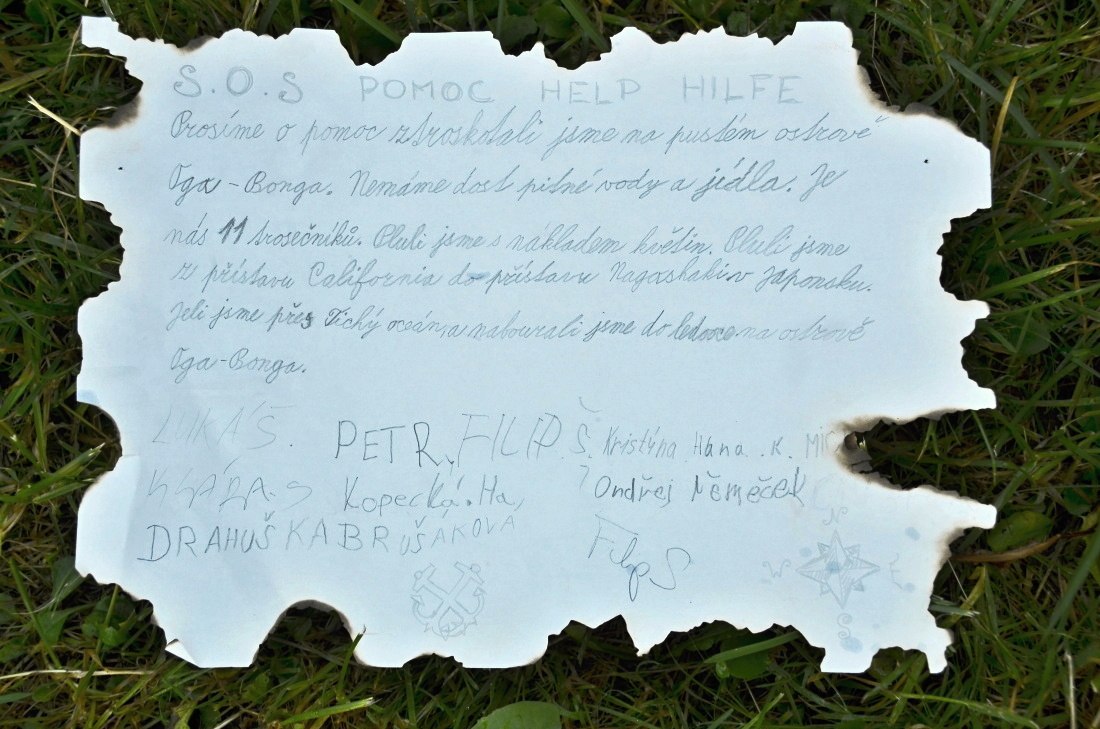 S.O.S POMOC HELP HILFE
Prosíme o pomoc ztroskotali jsme na pustém ostrově
Oga-Bonga. Nemáme dost pitné vody a jídla. Je
nás 11 trosečníků. Pluli jsme s nákladem květin. Pluli jsme
z přístavu California do přístavu Nagashaki v Japonsku.
Jeli jsme přes Tichý oceán, a nabourali jsme do ledovce na ostrově
Oga-Bonga.
LUKÁŠ. PETR, FILIP Š. Kristýna Hana K.
Kopecká Ha, Ondřej Němeček
DRAHUŠKA BRUŠÁKOVA
Filip S
N
W E
S